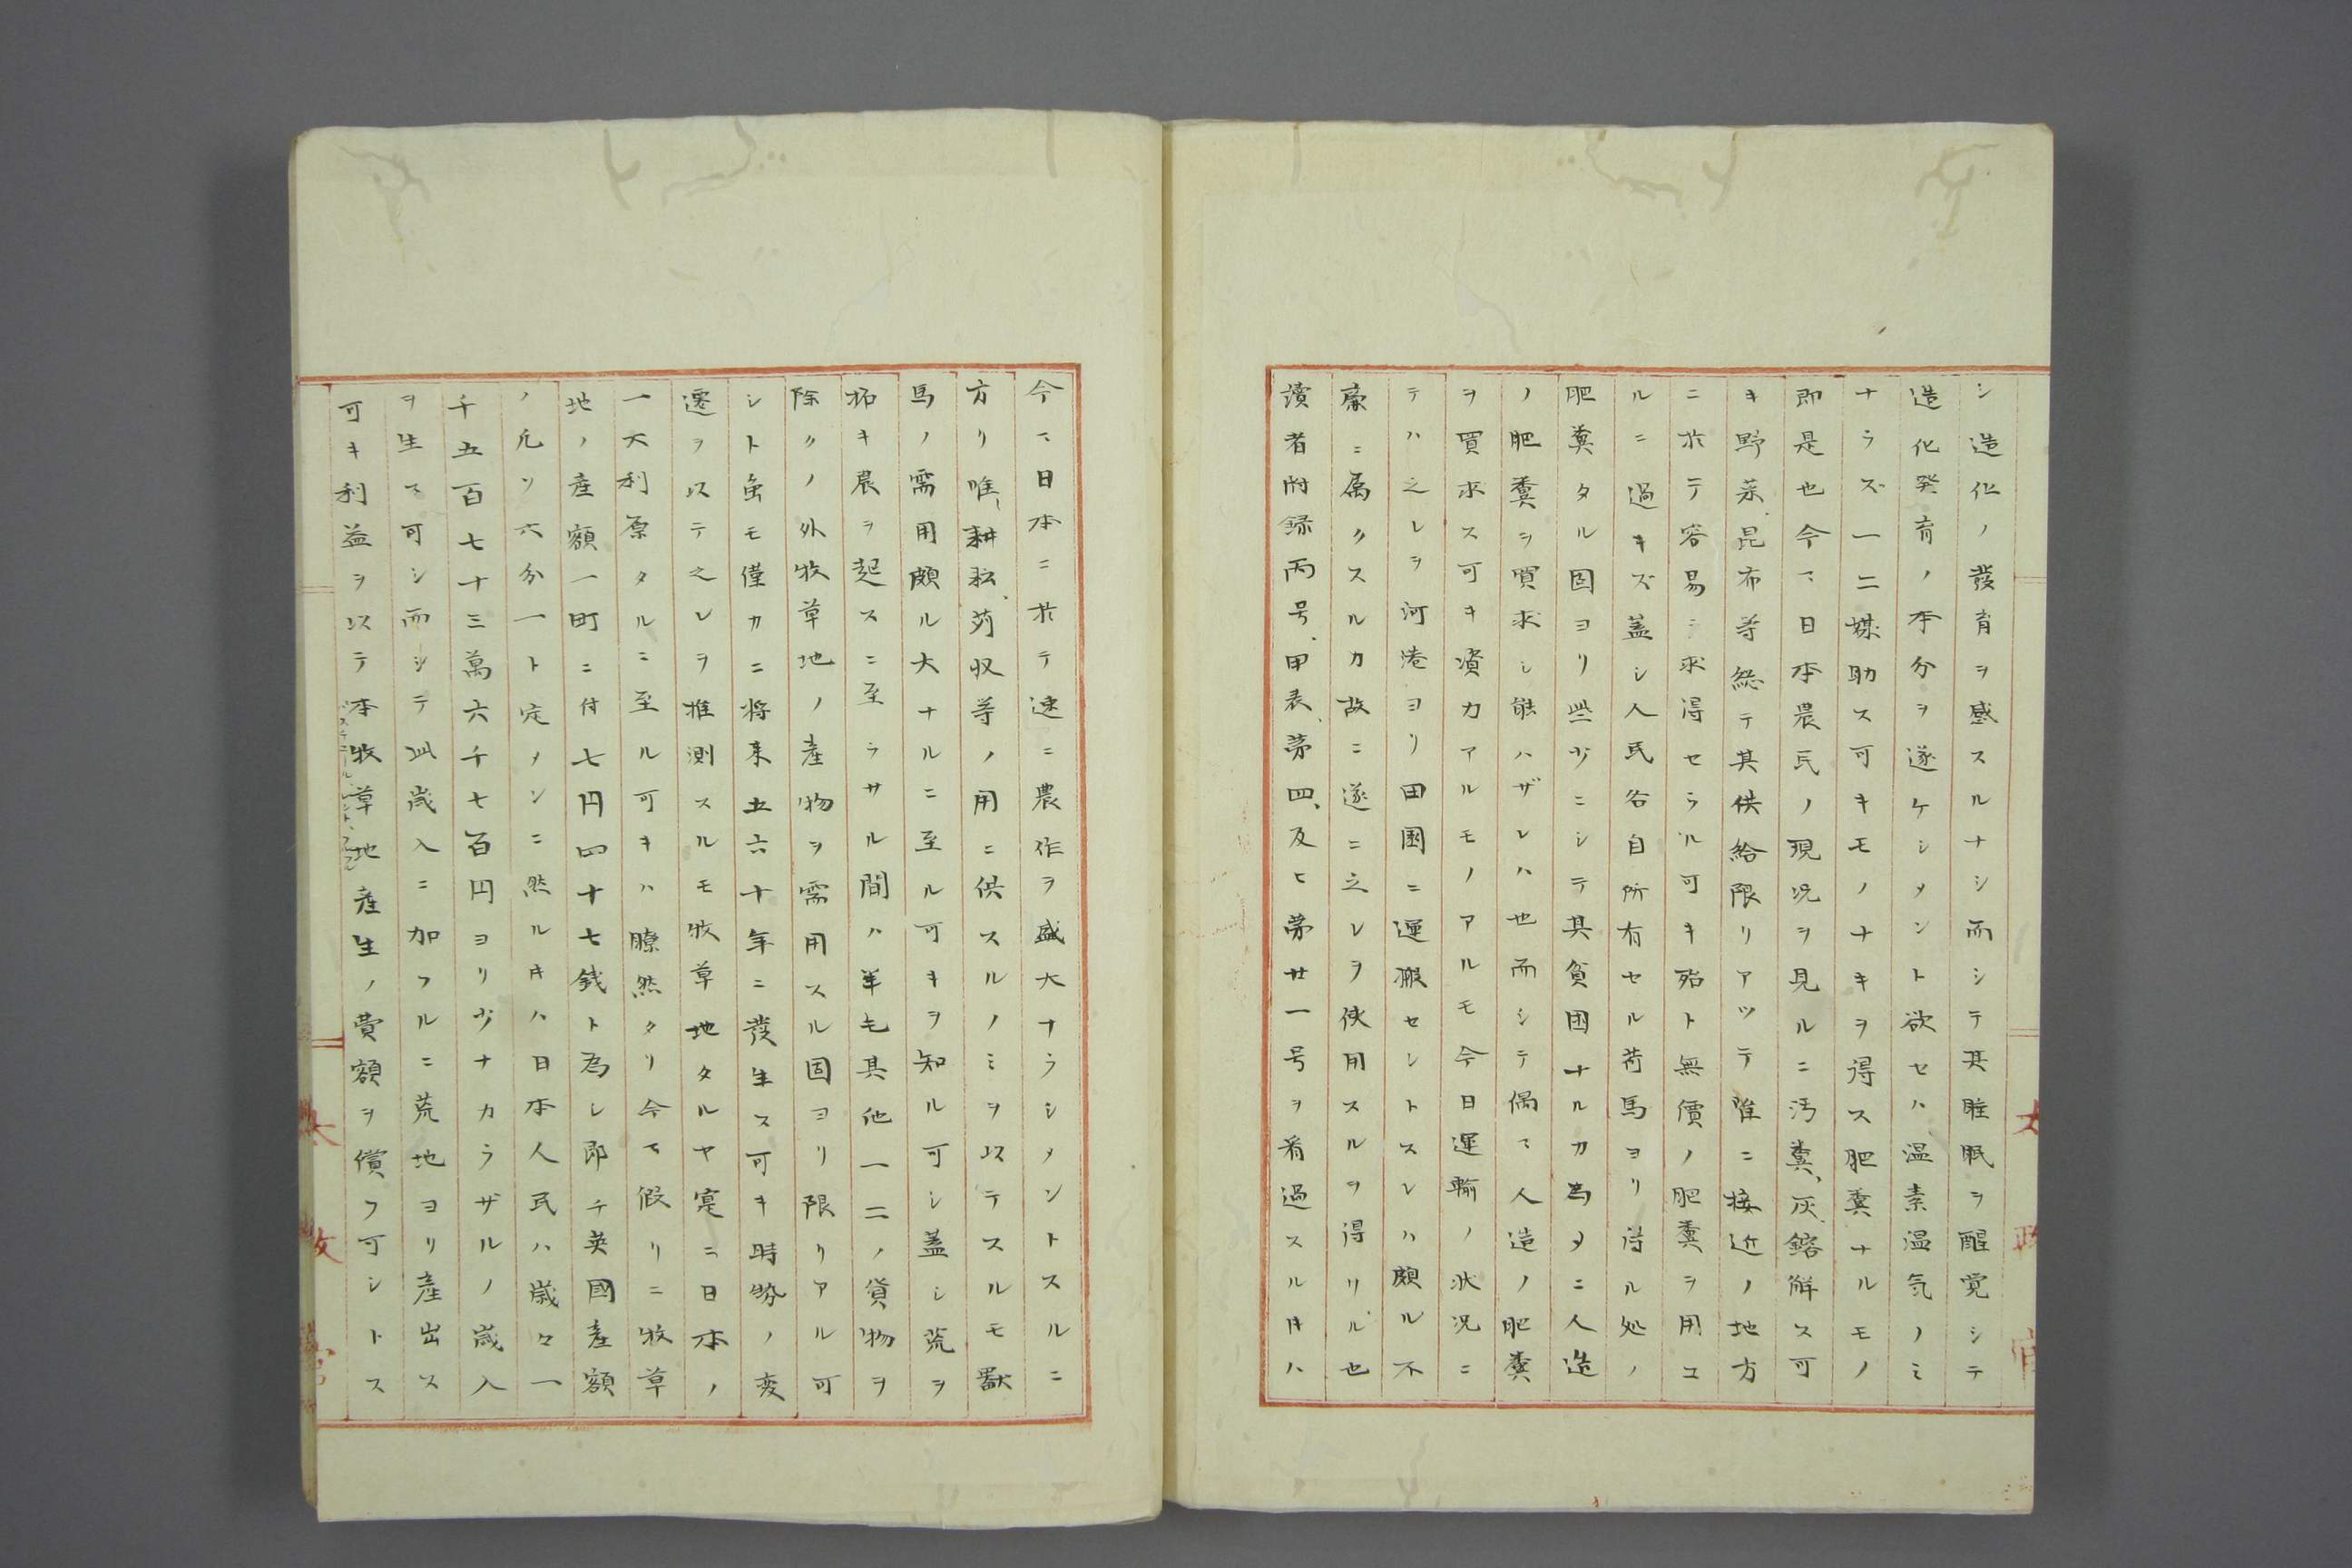 シ造化ノ發育ヲ感スルナシ而シテ其睡眠ヲ醒覚シテ
造化発育ノ本分ヲ遂ケシメント欲セハ温素温気ノミ
ナラズ一二媒助ス可キモノナキヲ得ス肥糞ナルモノ
即是也今マ日本農民ノ現况ヲ見ルニ汚糞、灰、鎔解ス可
キ野菜、昆布等総テ其供給限リアツテ唯ニ接近ノ地方
ニ於テ容易ニ求得セラル可キ殆ト無價ノ肥糞ヲ用ユ
ルニ過キズ蓋シ人民各自所有セル荷馬ヨリ得ル処ノ
肥糞タル固ヨリ些少ニシテ其貧困ナルカ為メニ人造
ノ肥糞ヲ買求シ能ハザレハ也而シテ偶マ人造ノ肥糞
ヲ買求ス可キ資力アルモノアルモ今日運輸ノ状況ニ
テハ之レヲ河港ヨリ田園ニ運搬セントスレハ頗ル不
廉ニ属クスルカ故ニ遂ニ之レヲ使用スルヲ得リル也
讀者附録丙号、甲表、第四、及ヒ第廿一号ヲ看過スルキハ
今マ日本ニ於テ速ニ農作ヲ盛大ナラシメントスルニ
方リ唯耕耘、苅収等ノ用ニ供スルノミヲ以テスルモ獸
馬ノ需用頗ル大ナルニ至ル可キヲ知ル可シ蓋シ荒ヲ
拓キ農ヲ起スニ至ラサル間ハ羊毛其他一二ノ貨物ヲ
除クノ外牧草地ノ産物ヲ需用スル固ヨリ限リアル可
シト虽モ僅カニ将来五六十年ニ發生ス可キ時勢ノ変
遷ヲ以テ之レヲ推測スルモ牧草地タルヤ寔ニ日本ノ
一大利原タルニ至ル可キハ瞭然タリ今マ假リニ牧草
地ノ産額一町ニ付七円四十七銭ト為シ即チ英國産額
ノ凡ソ六分一ト定メンニ然ルキハ日本人民ハ歳々一
千五百七十三萬六千七百円ヨリ少ナカラザルノ歳入
ヲ生ス可シ而シテ此歳入ニ加フルニ荒地ヨリ産出ス
可キ利益ヲ以テ本牧草地産生ノ費額ヲ償フ可シトス
太政官
太政官